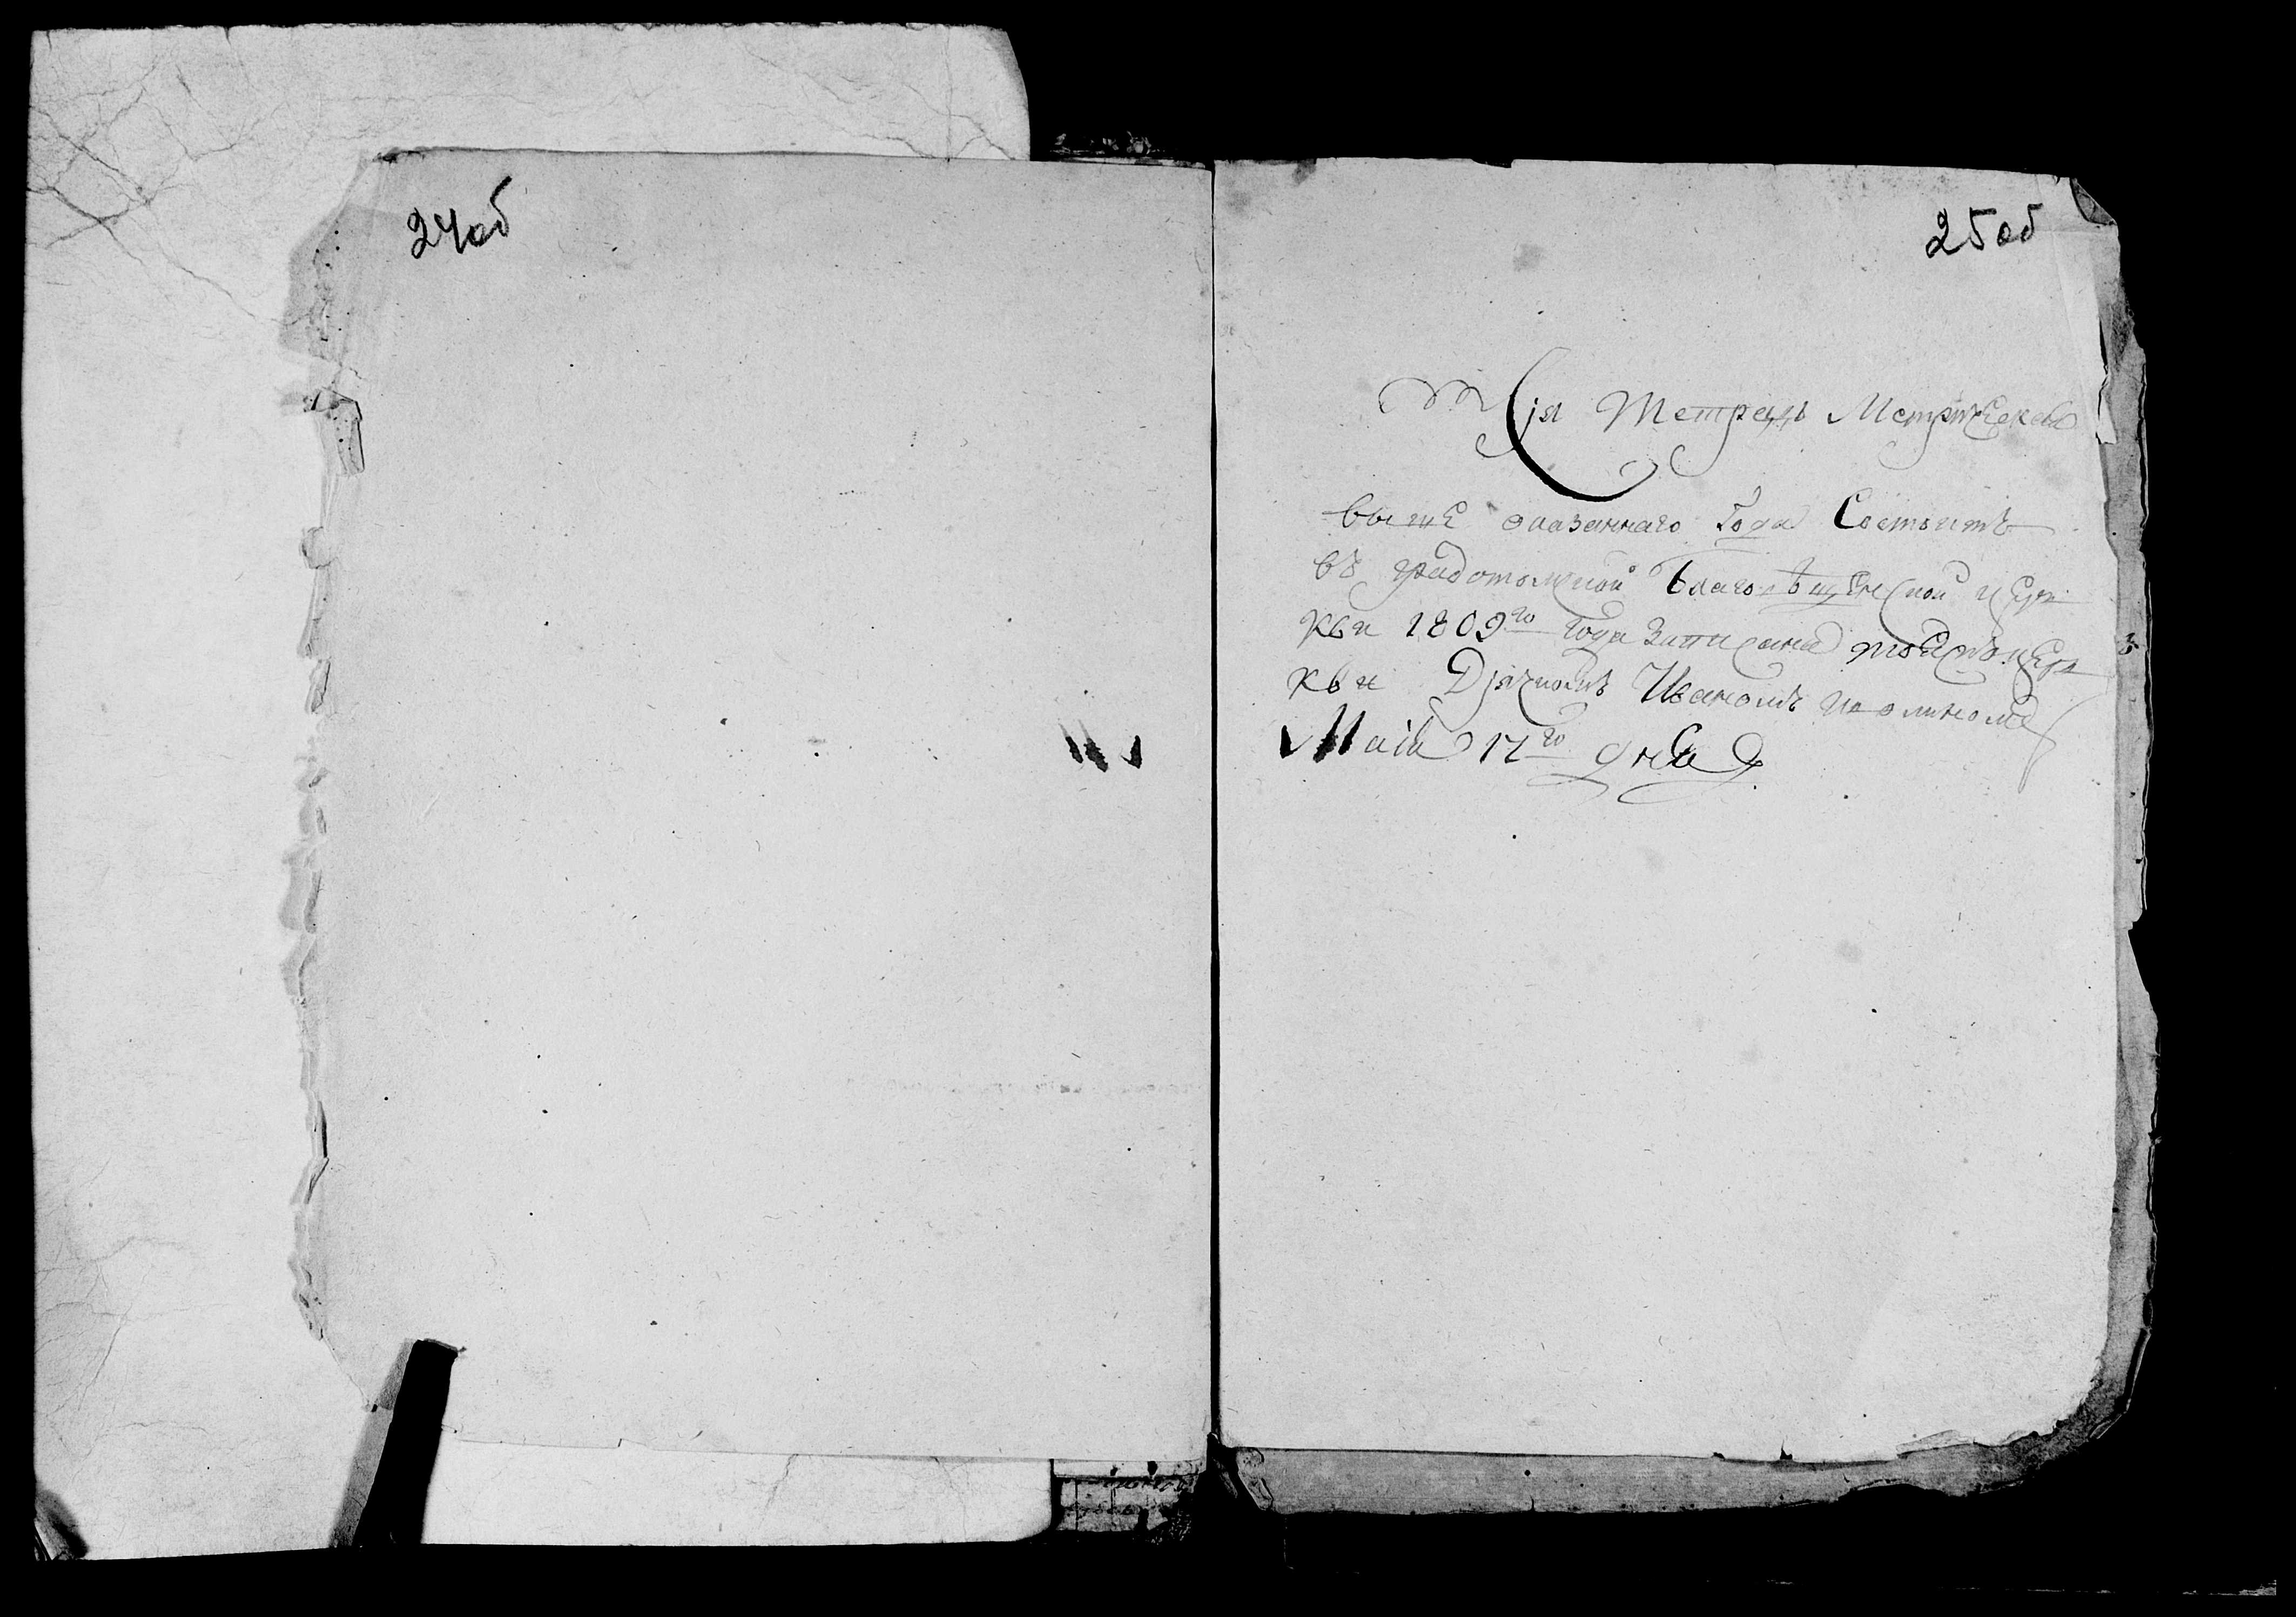 24об
25об
Сія Тетрадь Метрическа
выше оказаннаго Года Состоитъ
въ градотомской Благовѣщенской цер
кви 1809го Года Записана тоейжъ цер
кви Дьячкомъ Иваномъ
Маія 17го дня